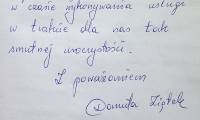 w czasie wykonywania usługi
w trakcie dla nas tak
smutnej uroczystości.
Z poważaniem
Danuta Ziętek